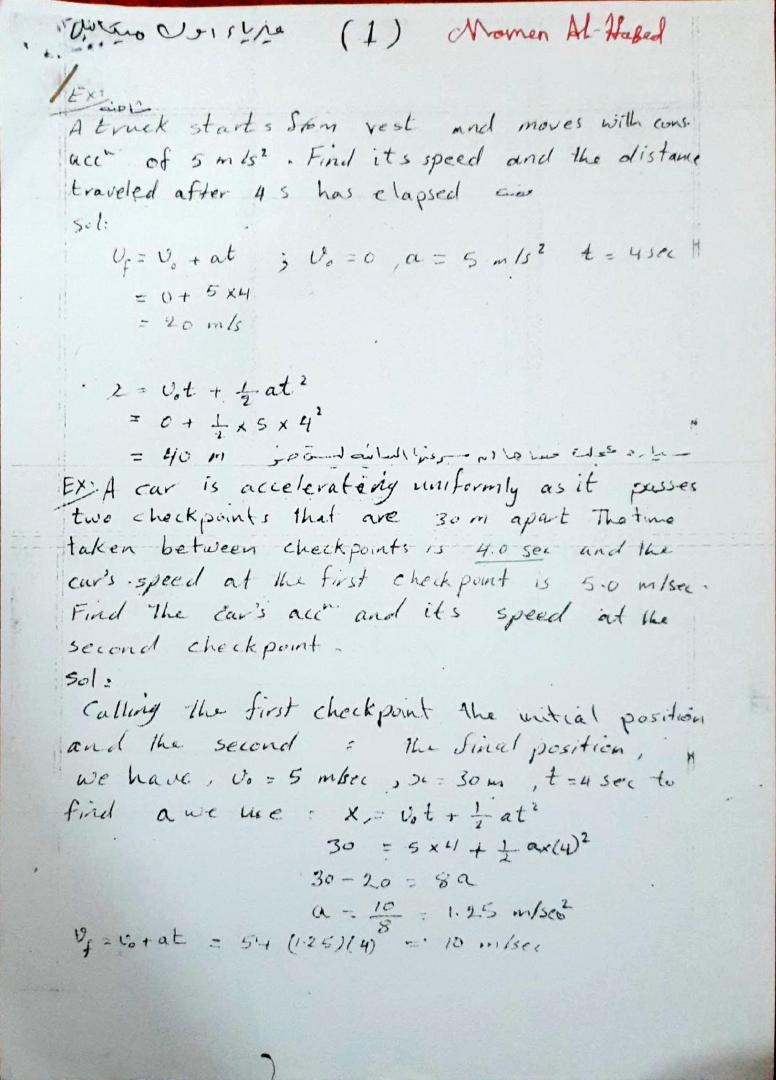 فيزياء اول ميكانيك (1) Momen Al-Hafed
Ex:
شاحنة
A truck starts from rest and moves with cons.
accⁿ of 5 m/s². Find its speed and the distance
traveled after 4 s has elapsed
Sol:
V_f = V₀ + at ; V₀ = 0, a = 5 m/s² t = 4 sec
= 0 + 5 x 4
= 20 m/s
x = V₀t + ½ at²
= 0 + ½ x 5 x 4²
= 40 m
Ex: A car is accelerating uniformly as it passes
two checkpoints that are 30 m apart The time
taken between checkpoints is 4.0 sec and the
car's speed at the first checkpoint is 5.0 m/sec.
Find the car's accⁿ and its speed at the
second checkpoint.
Sol:
Calling the first checkpoint the initial position
and the second = the final position,
we have, V₀ = 5 m/sec, x = 30 m, t = 4 sec to
find a we use : x = V₀t + ½ at²
30 = 5 x 4 + ½ ax(4)²
30 - 20 = 8a
a = 10/8 = 1.25 m/sec²
V_f = V₀ + at = 5 + (1.25)(4) = 10 m/sec